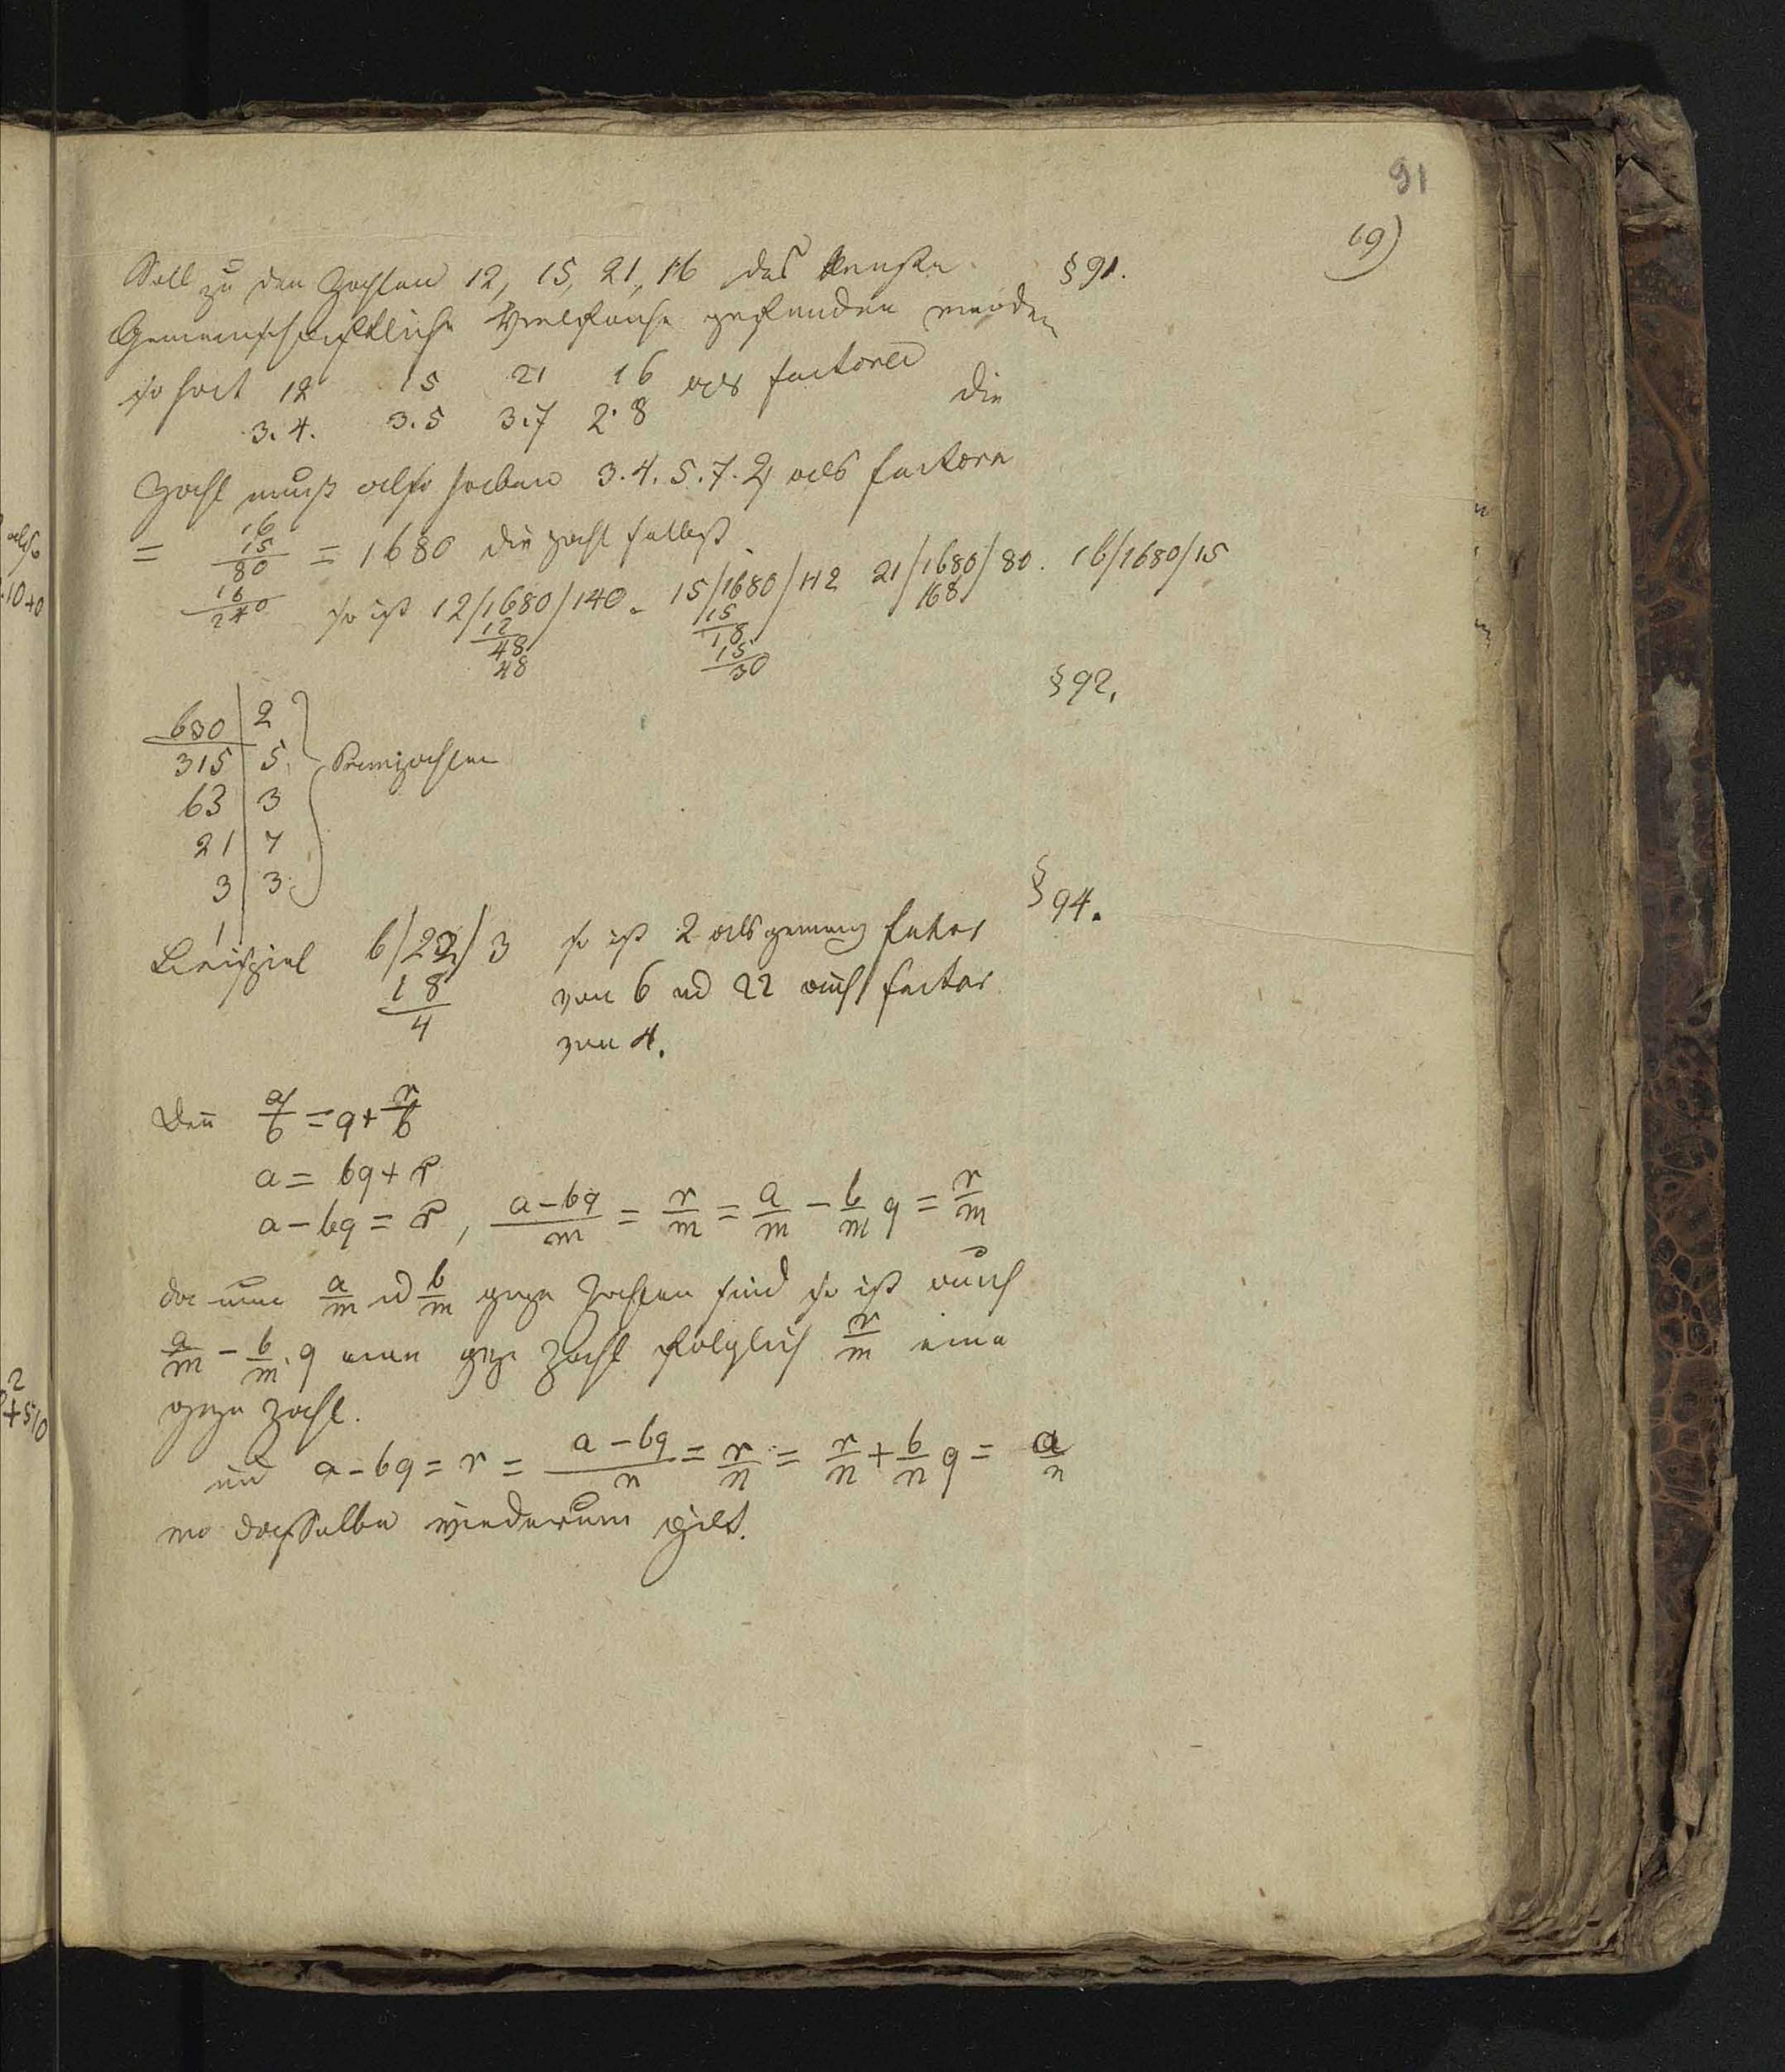 91
69)
Soll zu den Zahlen 12, 15, 21, 16 das kleinste §91.
Gemeinschaftliche Vielfache gefunden werden
so hat 12 15 21 16 als factoren
3.4. 3.5 3.7 2.8 die
Zahl muß also haben 3.4.5.7.2, als factoren
= 16
15
80 = 1680 die Zahl selbst
16
240 so ist 12/1680/140. 15/1680/112 21/1680/80. 16/1680/15
12 15 168
48 18
48 15
30
§92.
630 | 2
315 | 5 Primzahlen
63 | 3
21 | 7
3 | 3
1
§94.
Beispiel 6/22/3 so ist 2 als gemeins factor
18 von 6 und 22 auch factor
4 von 4.
Den a/b = q + r/b
a = bq + r
a - bq = r, (a-bq)/m = r/m = a/m - b/m q = r/m
da nun a/m und b/m ganze Zahlen sind so ist auch
a/m - b/m . q eine ganze Zahl folglich r/m eine
ganze Zahl.
und a - bq = r = (a-bq)/n = r/n = r/n + b/n q = a/n
wo dasselbe wiederum gilt.
also
10+0
2
+510